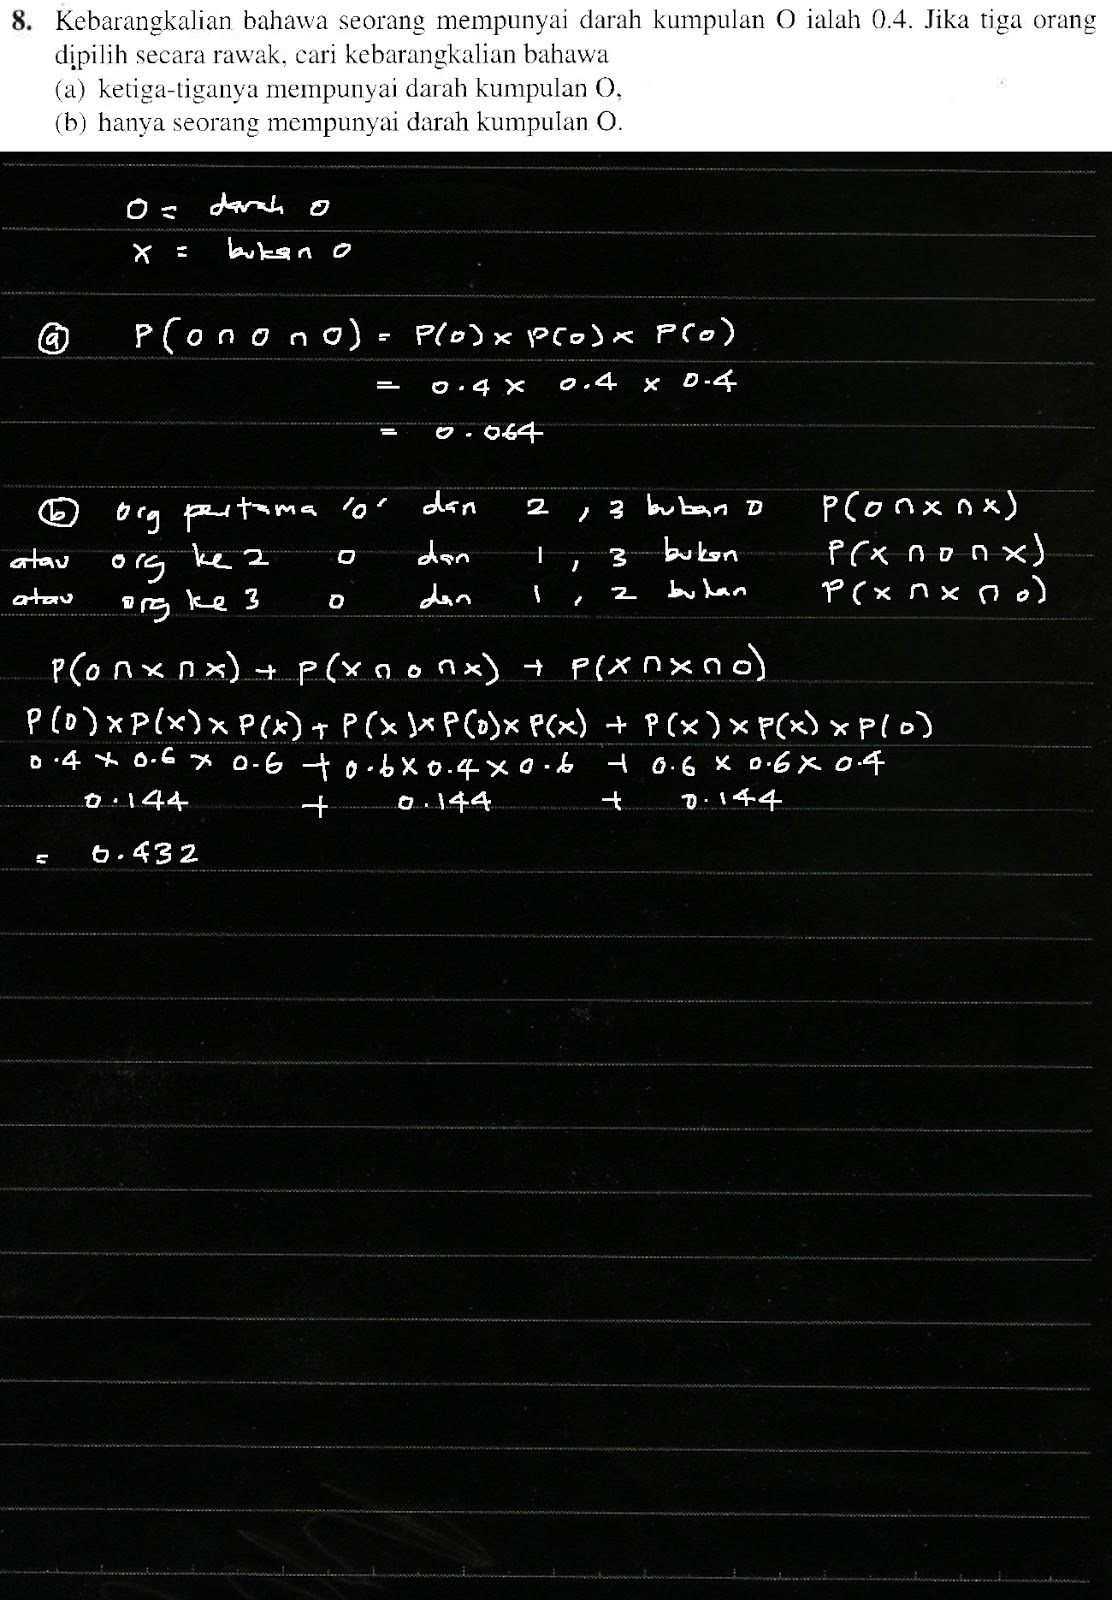 8. Kebarangkalian bahawa seorang mempunyai darah kumpulan O ialah 0.4. Jika tiga orang
dipilih secara rawak, cari kebarangkalian bahawa
(a) ketiga-tiganya mempunyai darah kumpulan O,
(b) hanya seorang mempunyai darah kumpulan O.
O = darah O
X = bukan O
(a) P(O ∩ O ∩ O) = P(O) × P(O) × P(O)
= 0.4 × 0.4 × 0.4
= 0.064
(b) org pertama 'O' dan 2, 3 bukan O P(O ∩ X ∩ X)
atau org ke 2 O dan 1, 3 bukan P(X ∩ O ∩ X)
atau org ke 3 O dan 1, 2 bukan P(X ∩ X ∩ O)
P(O ∩ X ∩ X) + P(X ∩ O ∩ X) + P(X ∩ X ∩ O)
P(O) × P(X) × P(X) + P(X) × P(O) × P(X) + P(X) × P(X) × P(O)
0.4 × 0.6 × 0.6 + 0.6 × 0.4 × 0.6 + 0.6 × 0.6 × 0.4
0.144 + 0.144 + 0.144
= 0.432